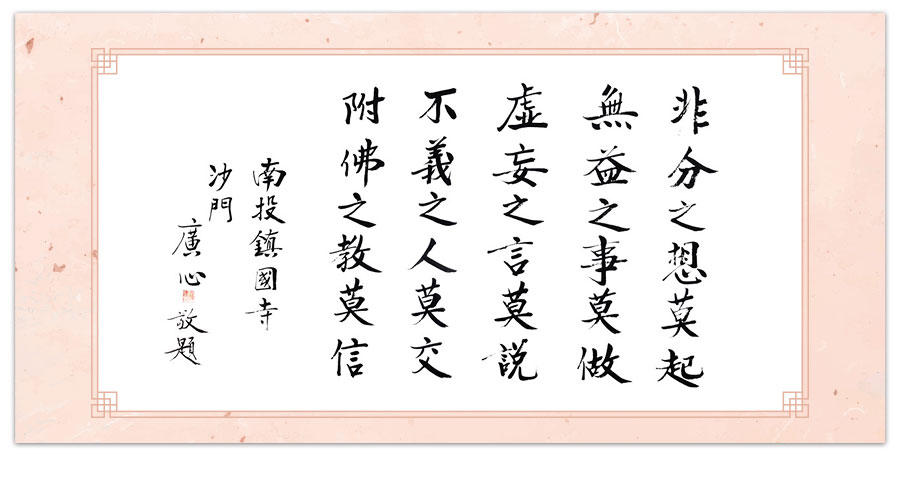 非分之想莫起
無益之事莫做
虛妄之言莫說
不義之人莫交
附佛之教莫信
南投鎮國寺
沙門
廣心敬題